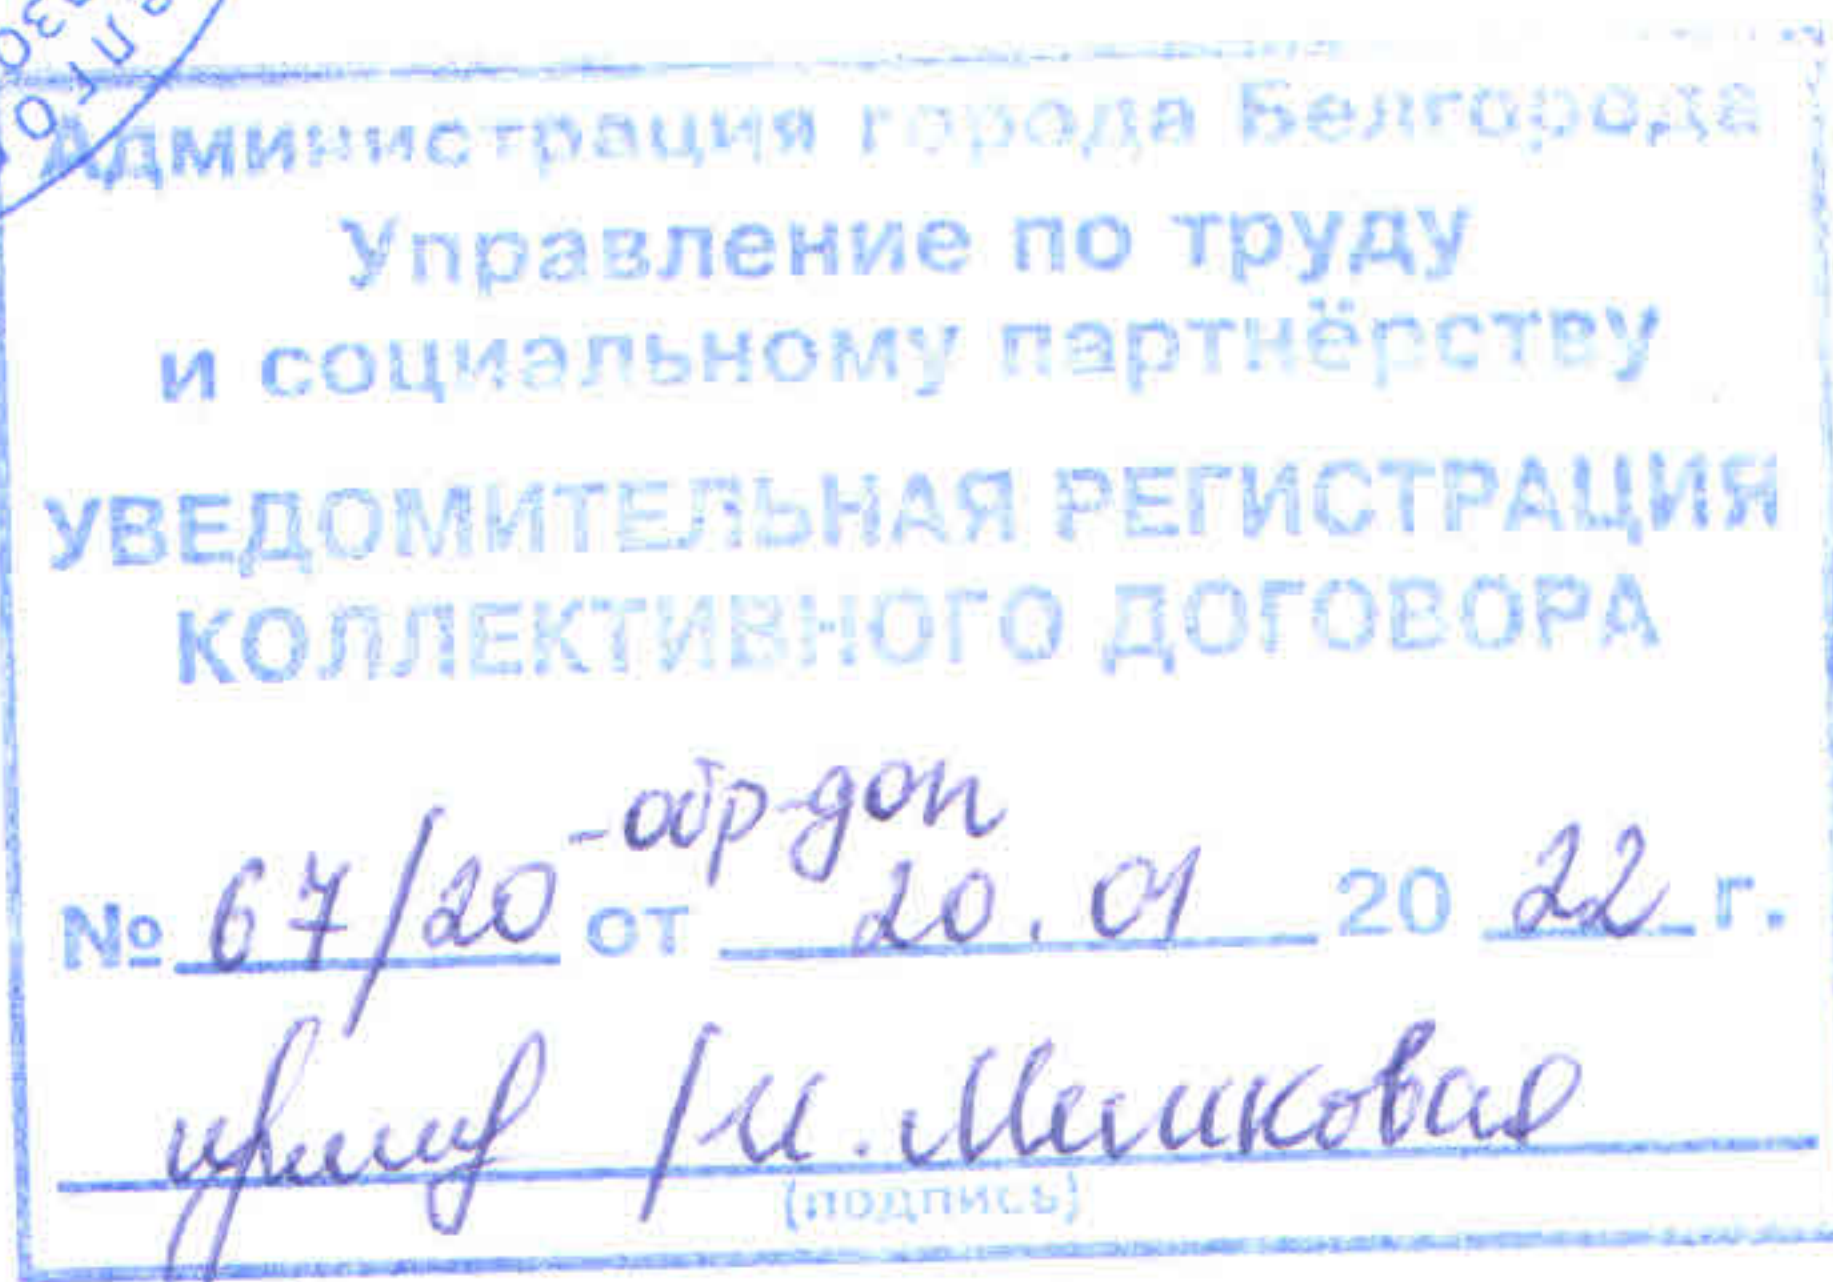 Администрация города Белгорода
Управление по труду
и социальному партнёрству
УВЕДОМИТЕЛЬНАЯ РЕГИСТРАЦИЯ
КОЛЛЕКТИВНОГО ДОГОВОРА
-обр-доп
№ 67/20 от 20.01 2022 г.
/И.
(подпись)